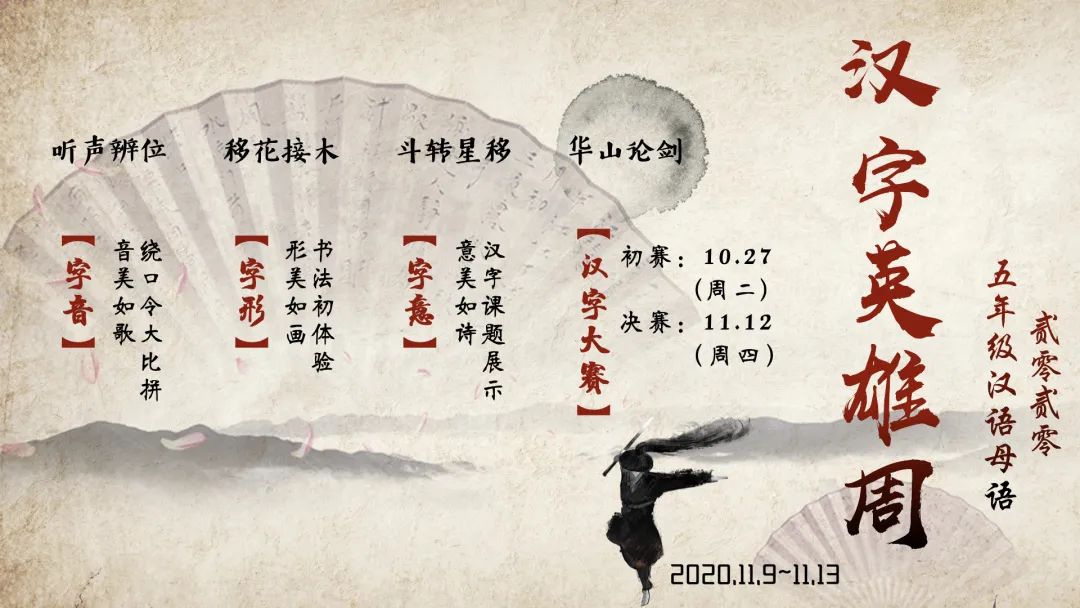 汉字英雄周
贰零贰零
五年级汉语母语
听声辨位
【字音】
绕口令大比拼
音美如歌
移花接木
【字形】
书法初体验
形美如画
斗转星移
【字意】
汉字课题展示
意美如诗
华山论剑
【汉字大赛】
初赛：10.27
(周二)
决赛：11.12
(周四)
2020.11.9~11.13